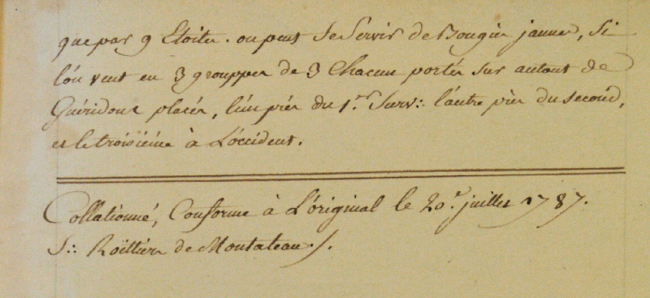 que par 9 Etoiles. on peut se Servir de Bougies jaunes, Si
l'on veut en 3 grouppes de 3 Chacun portés sur autant de
Guéridons placés, l'un près du 1.er Surv∴ l'autre près du second,
et le troisième à L'occident.
Collationné, Conforme à L'original le 20.e juillet 1787.
S∴ Roëttiers de Montaleau ./.